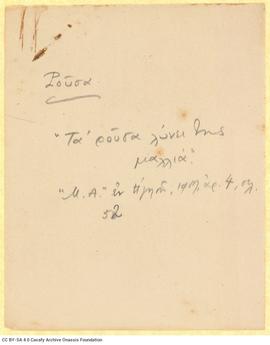 Ροῦσα
"Τὰ ροῦσα λύνει της
μαλλιά."
"Μ. Α." ἐν
4, σελ.
52
CC BY-SA 4.0 Cavafy Archive Onassis Foundation